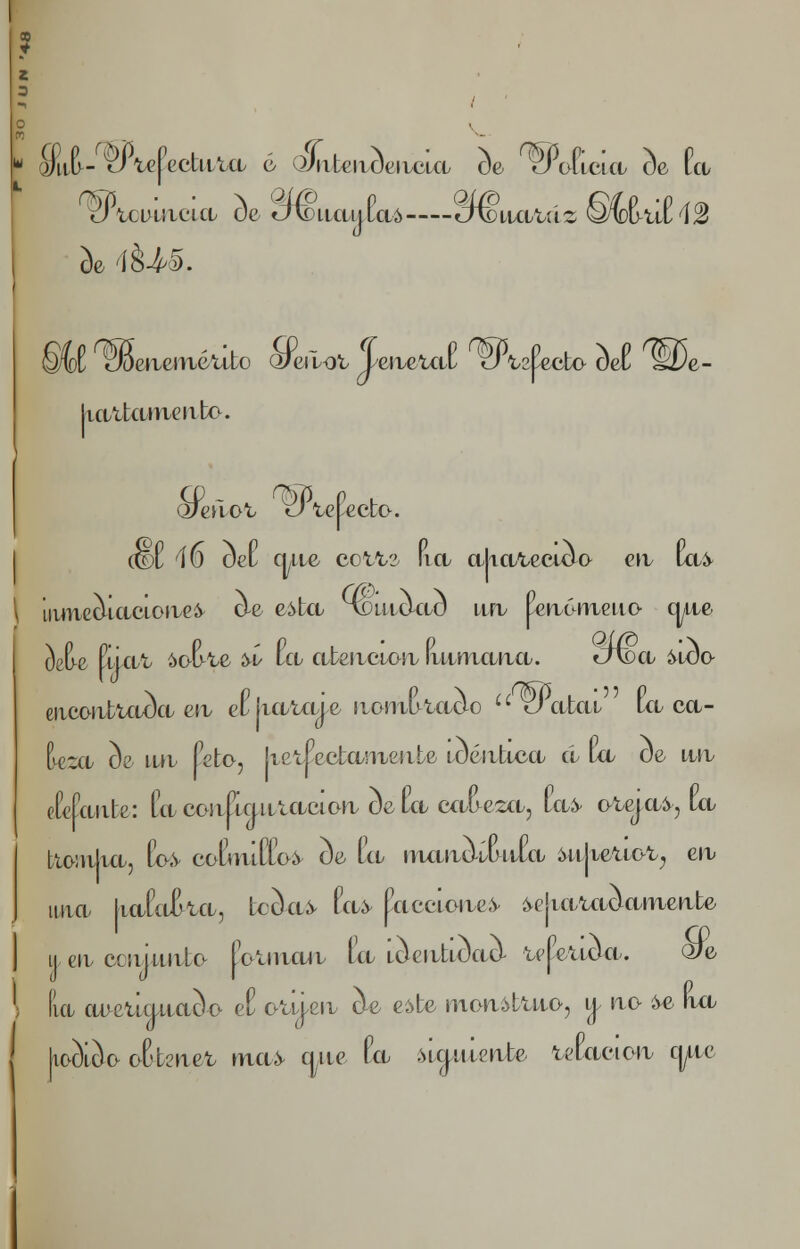 30 JUN '48
Sub-Prefectura é Intendencia de Policia de la
Provincia de Huaylas----Huaráz Abril 12
de 1845.
Al Benemérito Señor Jeneral Prefecto del De-
partamento.
Señor Prefecto.
El 16 del que corre ha aparecido en las
inmediaciones de esta Ciudad un fenómeno que
debe fijar sobre sí la atencion humana. Ha sido
encontrada en el paraje nombrado "Patai" la ca-
beza de un feto, perfectamente idéntica á la de un
elefante: la configuracion de la cabeza, las orejas, la
trompa, los colmillos de la mandíbula superior, en
una palabra, todas las facciones separadamente
y en conjunto forman la identidad referida. Se
ha averiguado el orijen de este monstruo, y no se ha
podido obtener mas que la siguiente relacion que